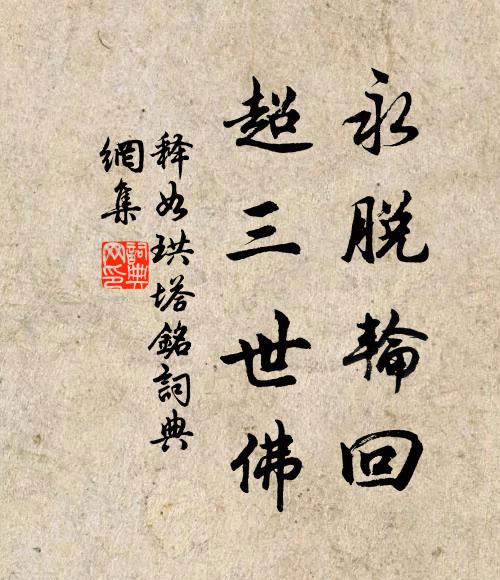 永脱輪回
超三世佛
释如珙塔銘詞典
網集
詞典
网印